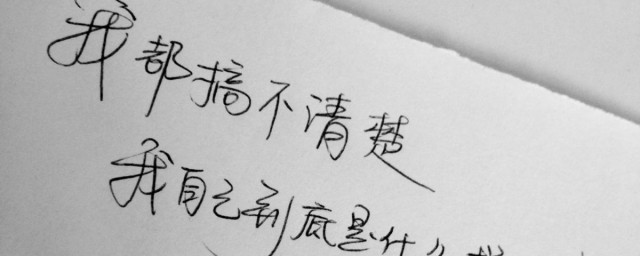 我都搞不清楚
我自己到底是什么